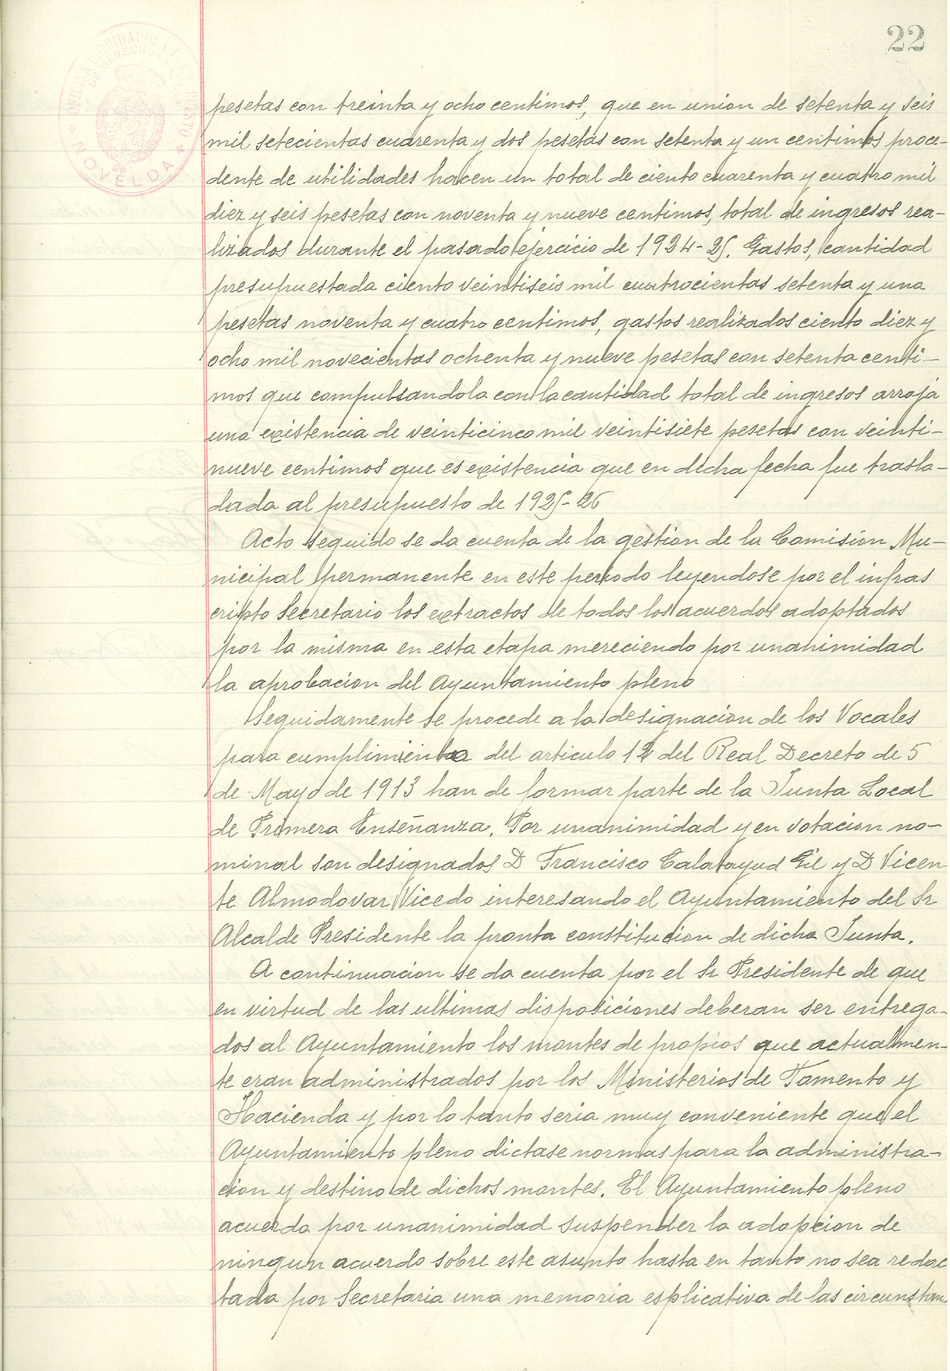 22
NOVELDA
pesetas con treinta y ocho centimos, que en union de setenta y seis
mil setecientas cuarenta y dos pesetas con setenta y un centimos proce-
dente de utilidades hacen un total de ciento cuarenta y cuatro mil
diez y seis pesetas con noventa y nueve centimos, total de ingresos rea-
lizados durante el pasado ejercicio de 1924-25. Gastos, cantidad
presupuestada ciento veintiseis mil cuatrocientas setenta y una
pesetas noventa y cuatro centimos, gastos realizados ciento diez y
ocho mil novecientas ochenta y nueve pesetas con setenta centi-
mos que compulsandola con la cantidad total de ingresos arroja
una existencia de veinticinco mil veintisiete pesetas con veinti-
nueve centimos que es existencia que en dicha fecha fue trasla-
dada al presupuesto de 1925-26
Acto seguido se da cuenta de la gestion de la Comision Mu-
nicipal permanente en este periodo leyendose por el infras
cripto Secretario los extractos de todos los acuerdos adoptados
por la misma en esta etapa mereciendo por unanimidad
la aprobacion del Ayuntamiento pleno
Seguidamente se procede a la designacion de los Vocales
para cumplimiento del articulo 12 del Real Decreto de 5
de Mayo de 1913 han de formar parte de la Junta Local
de Primera Enseñanza. Por unanimidad y en votacion no-
minal son designados D Francisco Calatayud Gil y D Vicen
te Almodovar Vicedo interesando el Ayuntamiento del Sr
Alcalde Presidente la pronta constitucion de dicha Junta.
A continuacion se da cuenta por el Sr Presidente de que
en virtud de las ultimas disposiciones deberan ser entrega-
dos al Ayuntamiento los montes de propios que actualmen-
te eran administrados por los Ministerios de Fomento y
Hacienda y por lo tanto seria muy conveniente que el
Ayuntamiento pleno dictase normas para la administra-
cion y destino de dichos montes. El Ayuntamiento pleno
acuerda por unanimidad suspender la adopcion de
ningun acuerdo sobre este asunto hasta en tanto no sea redac
tada por Secretaria una memoria esplicativa de las circunstan-